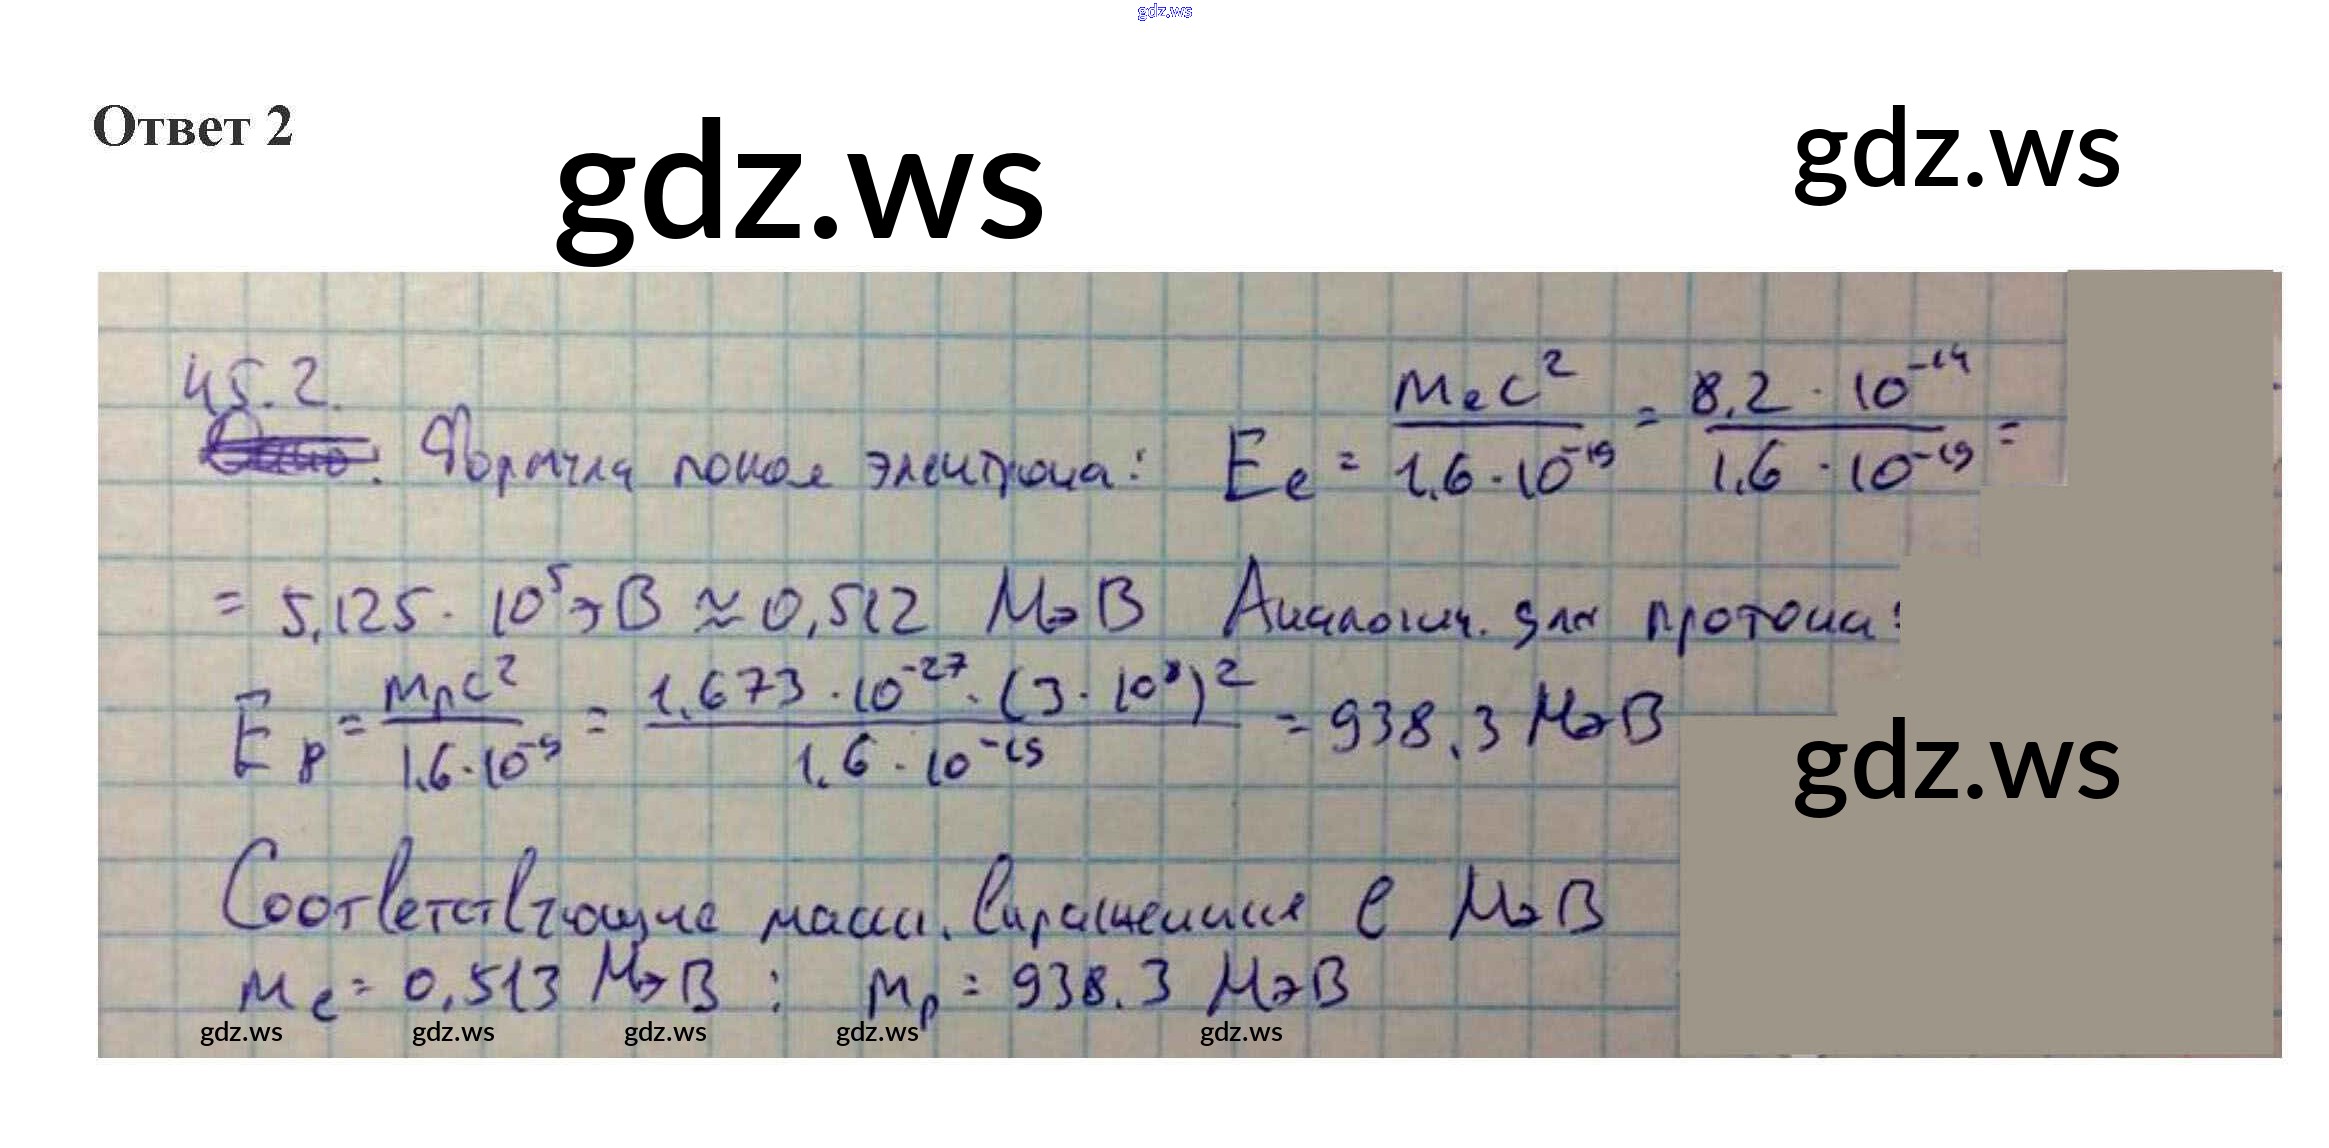 gdz.ws
Ответ 2
gdz.ws
gdz.ws
45.2.
Формула покоя электрона: Eₑ = mₑc² / 1.6·10⁻¹⁹ = 8,2·10⁻¹⁴ / 1.6·10⁻¹⁹ =
= 5,125·10⁵ эВ ≈ 0,512 МэВ Аналогич. для протона:
Eₚ = mₚc² / 1.6·10⁻⁹ = 1.673·10⁻²⁷·(3·10⁸)² / 1.6·10⁻¹⁹ = 938.3 МэВ
gdz.ws
Соответствующие масс. в МэВ
mₑ = 0,513 МэВ ; mₚ = 938.3 МэВ
gdz.ws gdz.ws gdz.ws gdz.ws gdz.ws